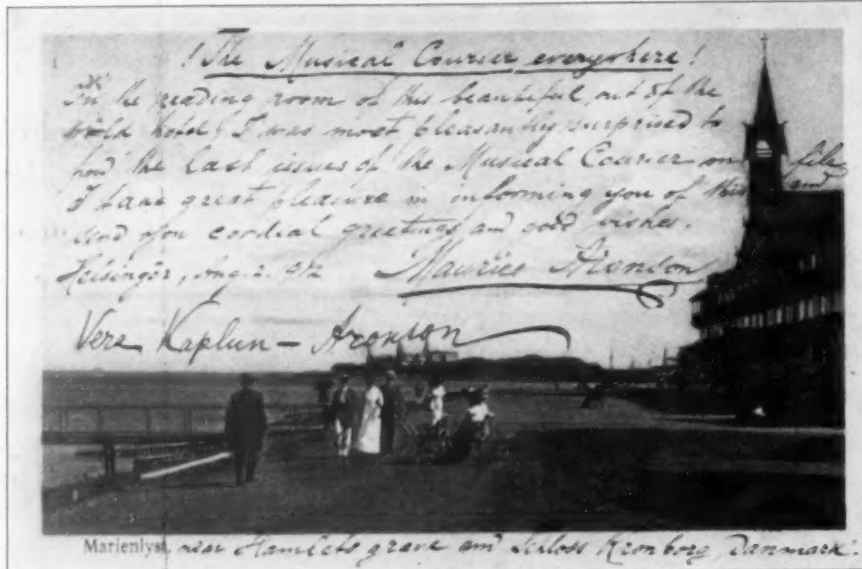 ! The Musical Courier everywhere !
In the reading room of this beautiful, out of the
world hotel! I was most pleasantly surprised to
find the last issues of the Musical Courier on file
I take great pleasure in informing you of this and
send you cordial greetings and good wishes.
Helsingör, Aug. 2. 1912 Maurice Aronson
Vera Kaplun - Aronson
Marienlyst, near Hamlets grave and Schloss Kronborg, Danmark.